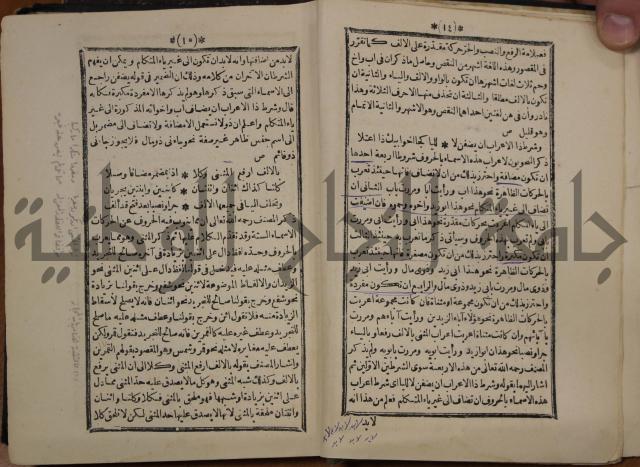 *(١٤)*
فعلامة الرفع والنصب والجر حركة مقدرة على الالف كما تقرر
في المقصور وهذه اللغة اشهر من النقص وحاصل ما ذكر ان في اب واخ
وحم ثلاث لغات اشهرها ان تكون بالواو والالف والياء والثانية ان
تكون بالالف مطلقا والثالثة ان تحذف منها الاحرف الثلاثة وهذا
نادر وأن في هن لغتين احداهما النقص وهو الاشهر والثانية الاتمام
وهو قليل ص
وشرط ذا الاعراب ان يضفن لا * لليا كجا اخو ابيك ذا اعتلا
ذكر النحويون لاعراب هذه الاسماء بالحروف شروطا اربعة احدها
ان تكون مضافة واحترز بذلك من ان لا تضاف فانها حينئذ تعرب
بالحركات الظاهرة نحو هذا اب ورأيت ابا ومررت باب الثاني ان
تضاف الى غير ياء المتكلم نحو هذا ابو زيد واخوه وحموه فان اضيفت
الى ياء المتكلم اعربت بحركات مقدرة نحو هذا ابي ورأيت ابي ومررت
بابي ولم تعرب بهذه الحروف وسيأتي ذكر ما تعرب به حينئذ الثالث
ان تكون مكبرة واحترز بذلك من ان تكون مصغرة فانها حينئذ تعرب
بالحركات الظاهرة نحو هذا ابي زيد وذوي مال ورأيت ابي زيد
وذوي مال ومررت بابي زيد وذوي مال والرابع ان تكون مفردة
واحترز بذلك من ان تكون مجموعة او مثناة فان كانت مجموعة اعربت
بالحركات الظاهرة نحو هؤلاء آباء الزيدين ورأيت آباءهم ومررت
بآبائهم وان كانت مثناة اعربت اعراب المثنى بالالف رفعا وبالياء
جرا ونصبا نحو هذان ابوا زيد ورأيت ابويه ومررت بابويه ولم يذكر
المصنف رحمه الله تعالى من هذه الاربعة سوى الشرطين الاولين ثم
اشار اليهما بقوله وشرط ذا الاعراب ان يضفن لا لليا اي شرط اعراب
هذه الاسماء بالحروف ان تضاف الى غير ياء المتكلم فعلم من هذا انه
لا بد
*(١٥)*
لا بد من اضافتها وانه لا بد ان تكون الى غير ياء المتكلم ويمكن ان يفهم
الشرطان الآخران من كلامه وذلك ان الضمير في قوله يضفن راجع
الى الاسماء التي سبق ذكرها وهو لم يذكرها الا مفردة مكبرة فكأنه
قال وشرط ذا الاعراب ان يضاف أب واخواته المذكورة الى غير
ياء المتكلم واعلم ان ذو لا تستعمل الا مضافة ولا تضاف الى مضمر بل
الى اسم جنس ظاهر غير صفة نحو جاءني ذو مال فلا يجوز جاءني
ذو قائم ص
بالالف ارفع المثنى وكلا * اذا بمضمر مضافا وصلا
كلتا كذاك اثنان واثنتان * كابنين وابنتين يجريان
وتخلف اليا في جميعها الالف * جرا ونصبا بعد فتح قد الف
ذكر المصنف رحمه الله تعالى ان مما تنوب فيه الحروف عن الحركات
الاسماء الستة وقد تقدم الكلام عليها ثم ذكر المثنى وهو مما يعرب
بالحروف وحده لفظ دال على اثنين بزيادة في آخره صالح للتجريد
وعطف مثله عليه فيدخل في قولنا لفظ دال على اثنين المثنى نحو
الزيدان والالفاظ الموضوعة لاثنين نحو شفع وخرج بقولنا بزيادة
نحو شفع وخرج بقولنا صالح للتجريد نحو اثنان فانه لا يصلح لاسقاط
الزيادة منه فلا تقول اثن وخرج بقولنا وعطف مثله عليه ما صلح
للتجريد وعطف غيره عليه كالقمرين فانه صالح للتجريد فتقول قمر ولكن
يعطف عليه مغايره لا مثله نحو قمر وشمس وهو المقصود بقولهم القمرين
واشار المصنف بقوله بالالف ارفع المثنى وكلا الى ان المثنى يرفع
بالالف وكذلك شبه المثنى وهو كل ما لا يصدق عليه حد المثنى مما دل
على اثنين بزيادة او شبهها فهو ملحق بالمثنى فكلا وكلتا واثنان
واثنتان ملحقة بالمثنى لانها لا يصدق عليها حد المثنى لكن لا تلحق كلا
جامعة النجاح الوطنية